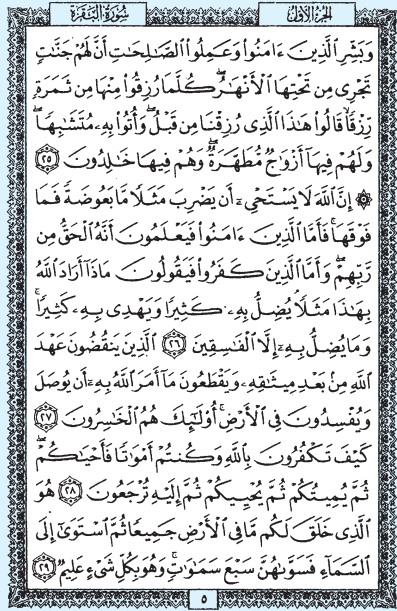 الجزء الأول
سورة البقرة
وَبَشِّرِ الَّذِينَ ءَامَنُوا وَعَمِلُوا الصَّالِحَاتِ أَنَّ لَهُمْ جَنَّاتٍ
تَجْرِي مِن تَحْتِهَا الْأَنْهَارُ كُلَّمَا رُزِقُوا مِنْهَا مِن ثَمَرَةٍ
رِّزْقًا قَالُوا هَٰذَا الَّذِي رُزِقْنَا مِن قَبْلُ وَأُتُوا بِهِ مُتَشَابِهًا
وَلَهُمْ فِيهَا أَزْوَاجٌ مُّطَهَّرَةٌ وَهُمْ فِيهَا خَالِدُونَ ٢٥
۞ إِنَّ اللَّهَ لَا يَسْتَحْيِ أَن يَضْرِبَ مَثَلًا مَّا بَعُوضَةً فَمَا
فَوْقَهَا فَأَمَّا الَّذِينَ ءَامَنُوا فَيَعْلَمُونَ أَنَّهُ الْحَقُّ مِن
رَّبِّهِمْ وَأَمَّا الَّذِينَ كَفَرُوا فَيَقُولُونَ مَاذَا أَرَادَ اللَّهُ
بِهَٰذَا مَثَلًا يُضِلُّ بِهِ كَثِيرًا وَيَهْدِي بِهِ كَثِيرًا
وَمَا يُضِلُّ بِهِ إِلَّا الْفَاسِقِينَ ٢٦ الَّذِينَ يَنقُضُونَ عَهْدَ
اللَّهِ مِن بَعْدِ مِيثَاقِهِ وَيَقْطَعُونَ مَا أَمَرَ اللَّهُ بِهِ أَن يُوصَلَ
وَيُفْسِدُونَ فِي الْأَرْضِ أُولَٰئِكَ هُمُ الْخَاسِرُونَ ٢٧
كَيْفَ تَكْفُرُونَ بِاللَّهِ وَكُنتُمْ أَمْوَاتًا فَأَحْيَاكُمْ
ثُمَّ يُمِيتُكُمْ ثُمَّ يُحْيِيكُمْ ثُمَّ إِلَيْهِ تُرْجَعُونَ ٢٨ هُوَ
الَّذِي خَلَقَ لَكُم مَّا فِي الْأَرْضِ جَمِيعًا ثُمَّ اسْتَوَىٰ إِلَى
السَّمَاءِ فَسَوَّاهُنَّ سَبْعَ سَمَاوَاتٍ وَهُوَ بِكُلِّ شَيْءٍ عَلِيمٌ ٢٩
٥